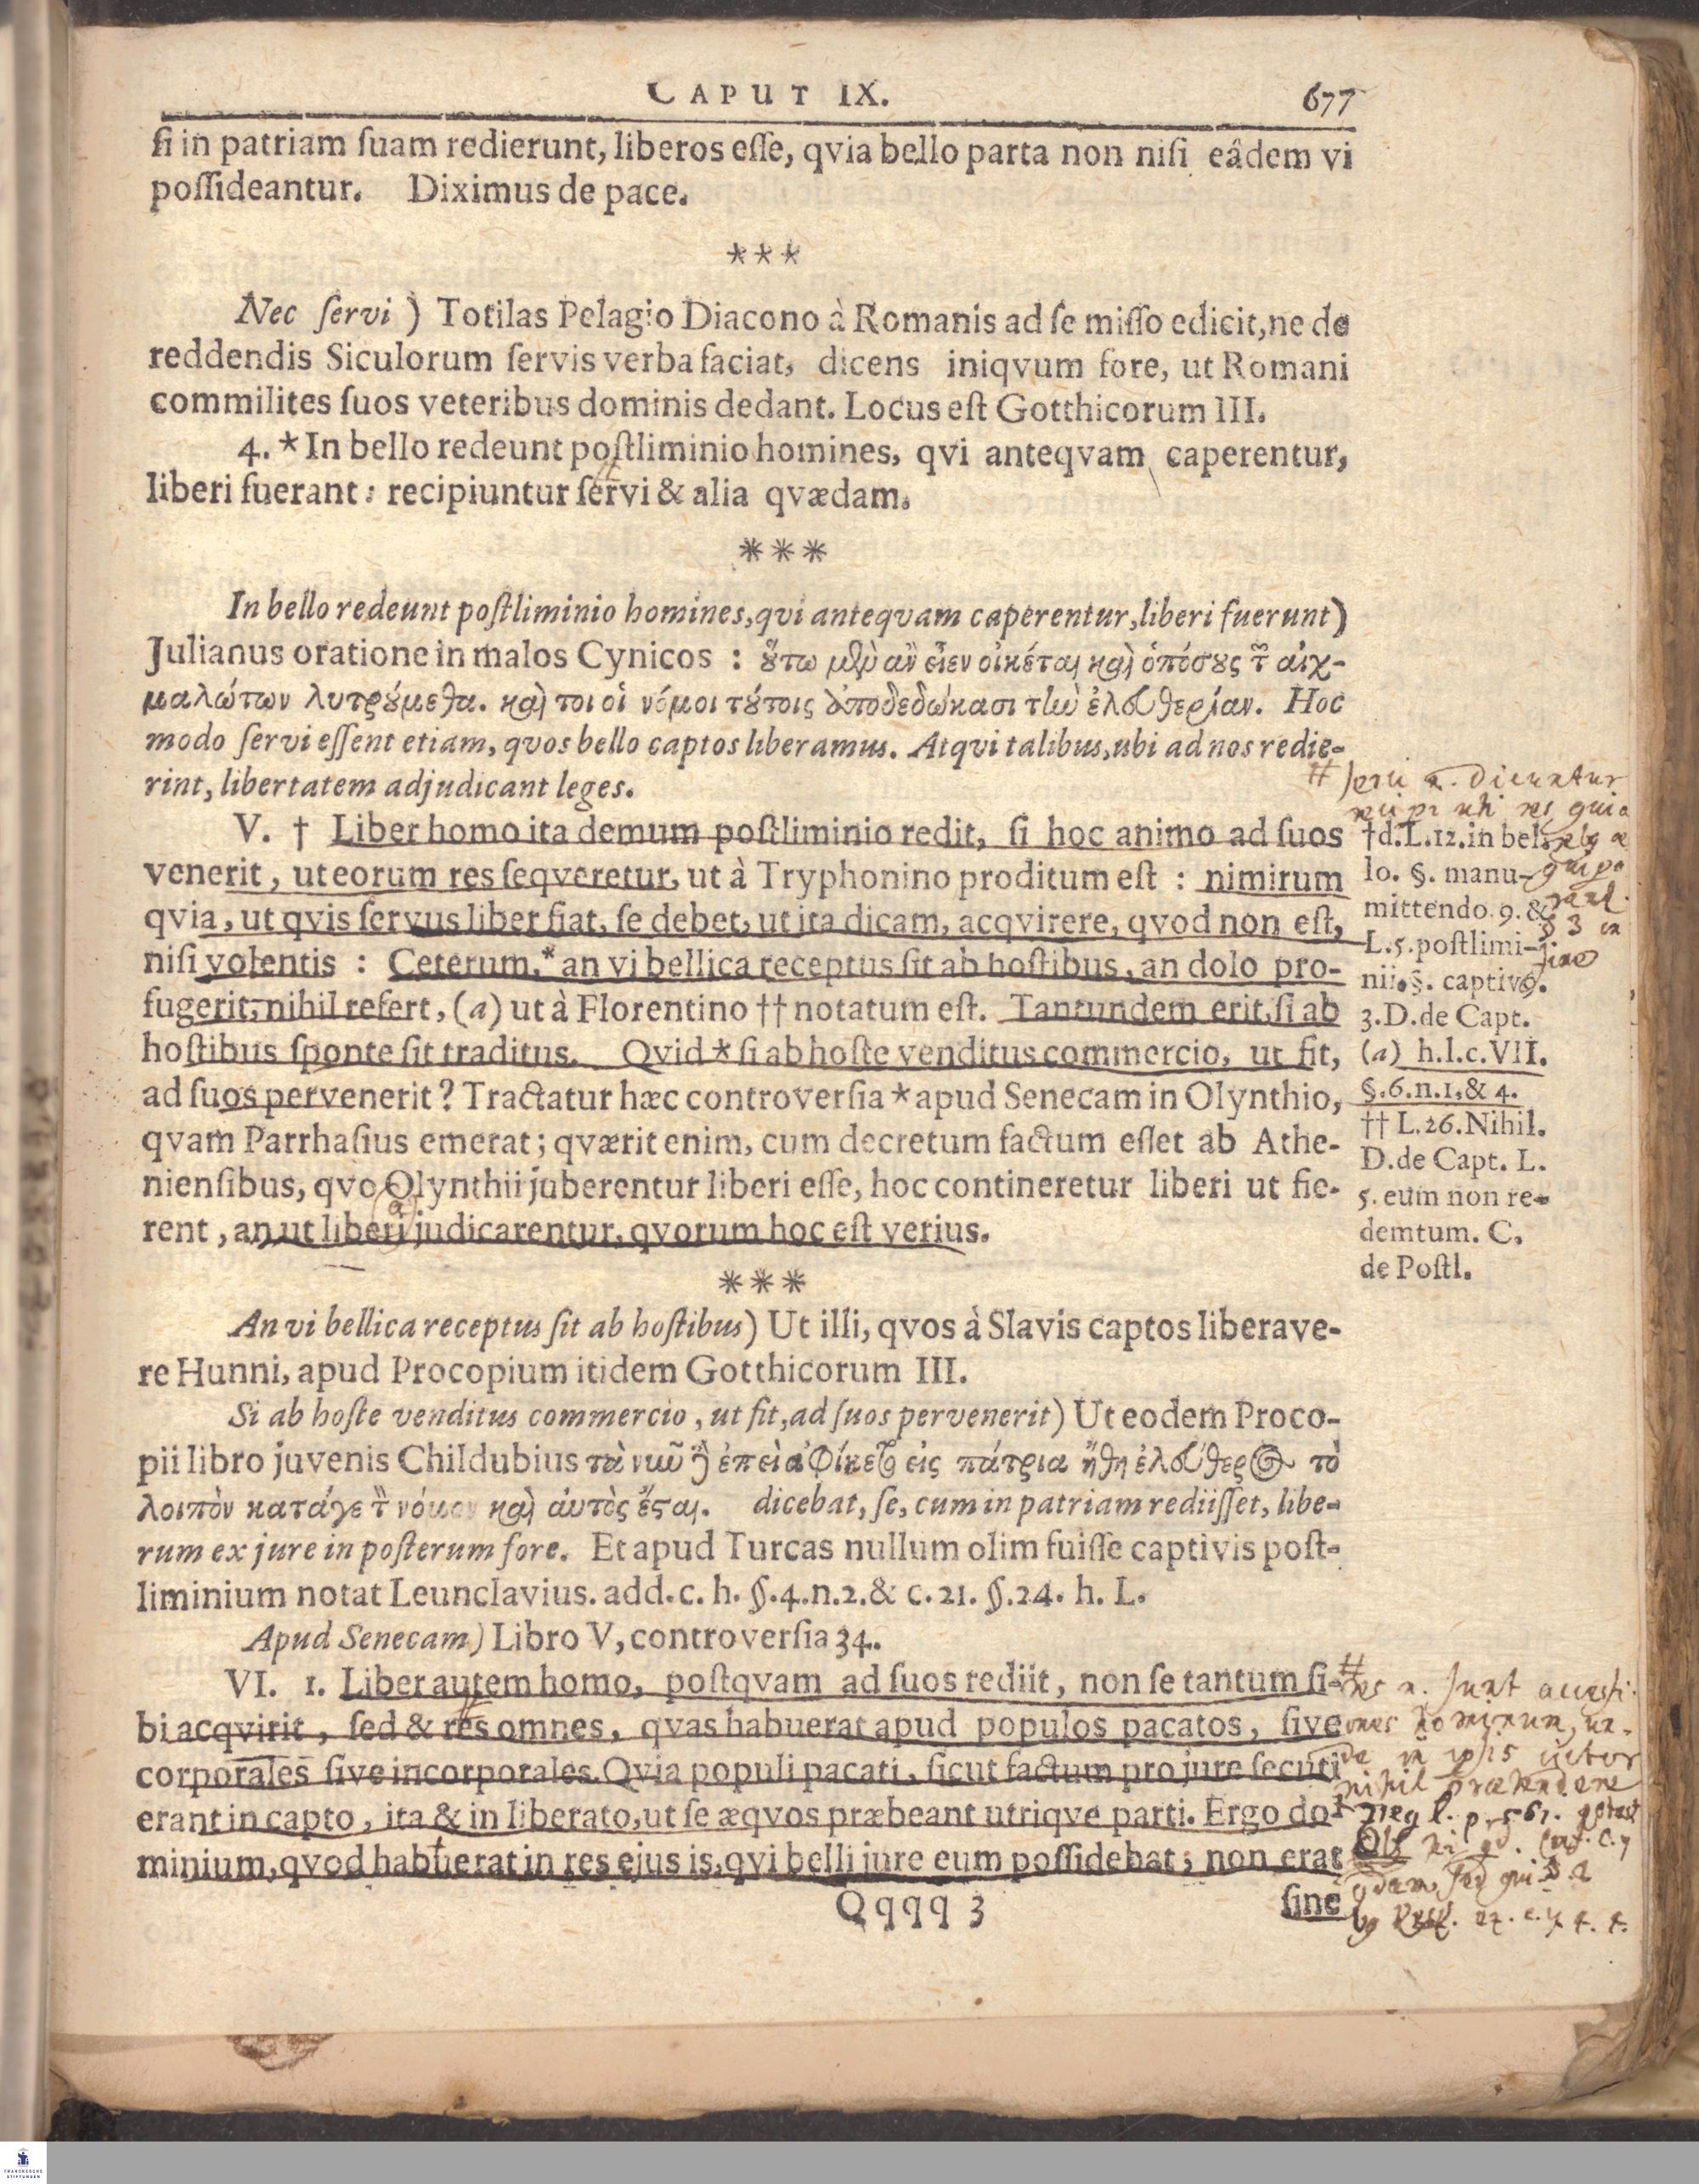 CAPUT IX. 677
ſi in patriam ſuam redierunt, liberos eſſe, qvia bello parta non niſi eâdem vi
poſſideantur. Diximus de pace.
***
Nec ſervi) Totilas Pelagio Diacono à Romanis ad ſe miſſo edicit, ne de
reddendis Siculorum ſervis verba faciat, dicens iniqvum fore, ut Romani
commilites ſuos veteribus dominis dedant. Locus eſt Gotthicorum III.
4. * In bello redeunt poſtliminio homines, qvi anteqvam caperentur,
liberi fuerant: recipiuntur ſervi & alia qvædam.
***
In bello redeunt poſtliminio homines, qvi anteqvam caperentur, liberi fuerunt)
Julianus oratione in malos Cynicos : ȣ̓́τω μὲν ἂν εἶεν οἰκέται καὶ ὁπόσȣς τ̃ αἰχ-
μαλώτων λυτρȣ́μεθα. καὶ τοι οἱ νόμοι τȣ́τοις ἀποδεδώκασι τὼ ἐλευθερίαν. Hoc
modo ſervi eſſent etiam, quos bello captos liberamus. Atqvi talibus, ubi ad nos redie-
rint, libertatem adjudicant leges.
V. † Liber homo ita demum poſtliminio redit, ſi hoc animo ad ſuos
venerit, ut eorum res ſeqveretur, ut à Tryphonino proditum eſt : nimirum
qvia, ut qvis ſervus liber fiat, ſe debet, ut ita dicam, acqvirere, qvod non eſt,
niſi volentis : Ceterum, * an vi bellica receptus ſit ab hoſtibus, an dolo pro-
fugerit, nihil refert, (a) ut à Florentino †† notatum eſt. Tantundem erit, ſi ab
hoſtibus ſponte ſit traditus. Qvid * ſi ab hoſte venditus commercio, ut fit,
ad ſuos pervenerit? Tractatur hæc controverſia * apud Senecam in Olynthio,
qvam Parrhaſius emerat; qværit enim, cum decretum factum eſſet ab Athe-
nienſibus, qvo Olynthii juberentur liberi eſſe, hoc contineretur liberi ut fie-
rent, an ut liberi judicarentur, qvorum hoc eſt verius.
# ſervi n. dicuntur
†d. L. 12. in bel-
lo. §. manu-
mittendo. 9. &
L. 5. poſtlimi-
nii. §. captivꝰ.
3. D. de Capt.
(a) h. l. c. VII.
§. 6. n. 1. & 4.
†† L. 26. Nihil.
D. de Capt. L.
5. eum non re-
demtum. C.
de Poſtl.
***
An vi bellica receptus ſit ab hoſtibus) Ut illi, qvos à Slavis captos liberave-
re Hunni, apud Procopium itidem Gotthicorum III.
Si ab hoſte venditus commercio, ut fit, ad ſuos pervenerit) Ut eodem Proco-
pii libro juvenis Childubius ἐπεὶ ἀφίκετο εἰς πάτρια ἤθη ἐλεύθερος τὸ
λοιπὸν κατάγε τ̀ νόμον καὶ ἀυτὸς ἔςαι. dicebat, ſe, cum in patriam rediiſſet, libe-
rum ex jure in poſterum fore. Et apud Turcas nullum olim fuiſſe captivis poſt-
liminium notat Leunclavius. add. c. h. §. 4. n. 2. & c. 21. §. 24. h. L.
Apud Senecam) Libro V, controverſia 34.
VI. 1. Liber autem homo, poſtqvam ad ſuos rediit, non ſe tantum ſi-
bi acqvirit, ſed & res omnes, qvas habuerat apud populos pacatos, ſive
corporales ſive incorporales. Qvia populi pacati, ſicut factum pro jure ſecuti
erant in capto, ita & in liberato, ut ſe æqvos præbeant utriqve parti. Ergo do-
minium, qvod habuerat in res ejus is, qvi belli jure eum poſſidebat, non erat
# res n. ſunt acceſſi-
ones hominum, un-
de in ipſis victor
nihil prætendere
Qqqq 3 ſine
FRANCKESCHE
STIFTUNGEN